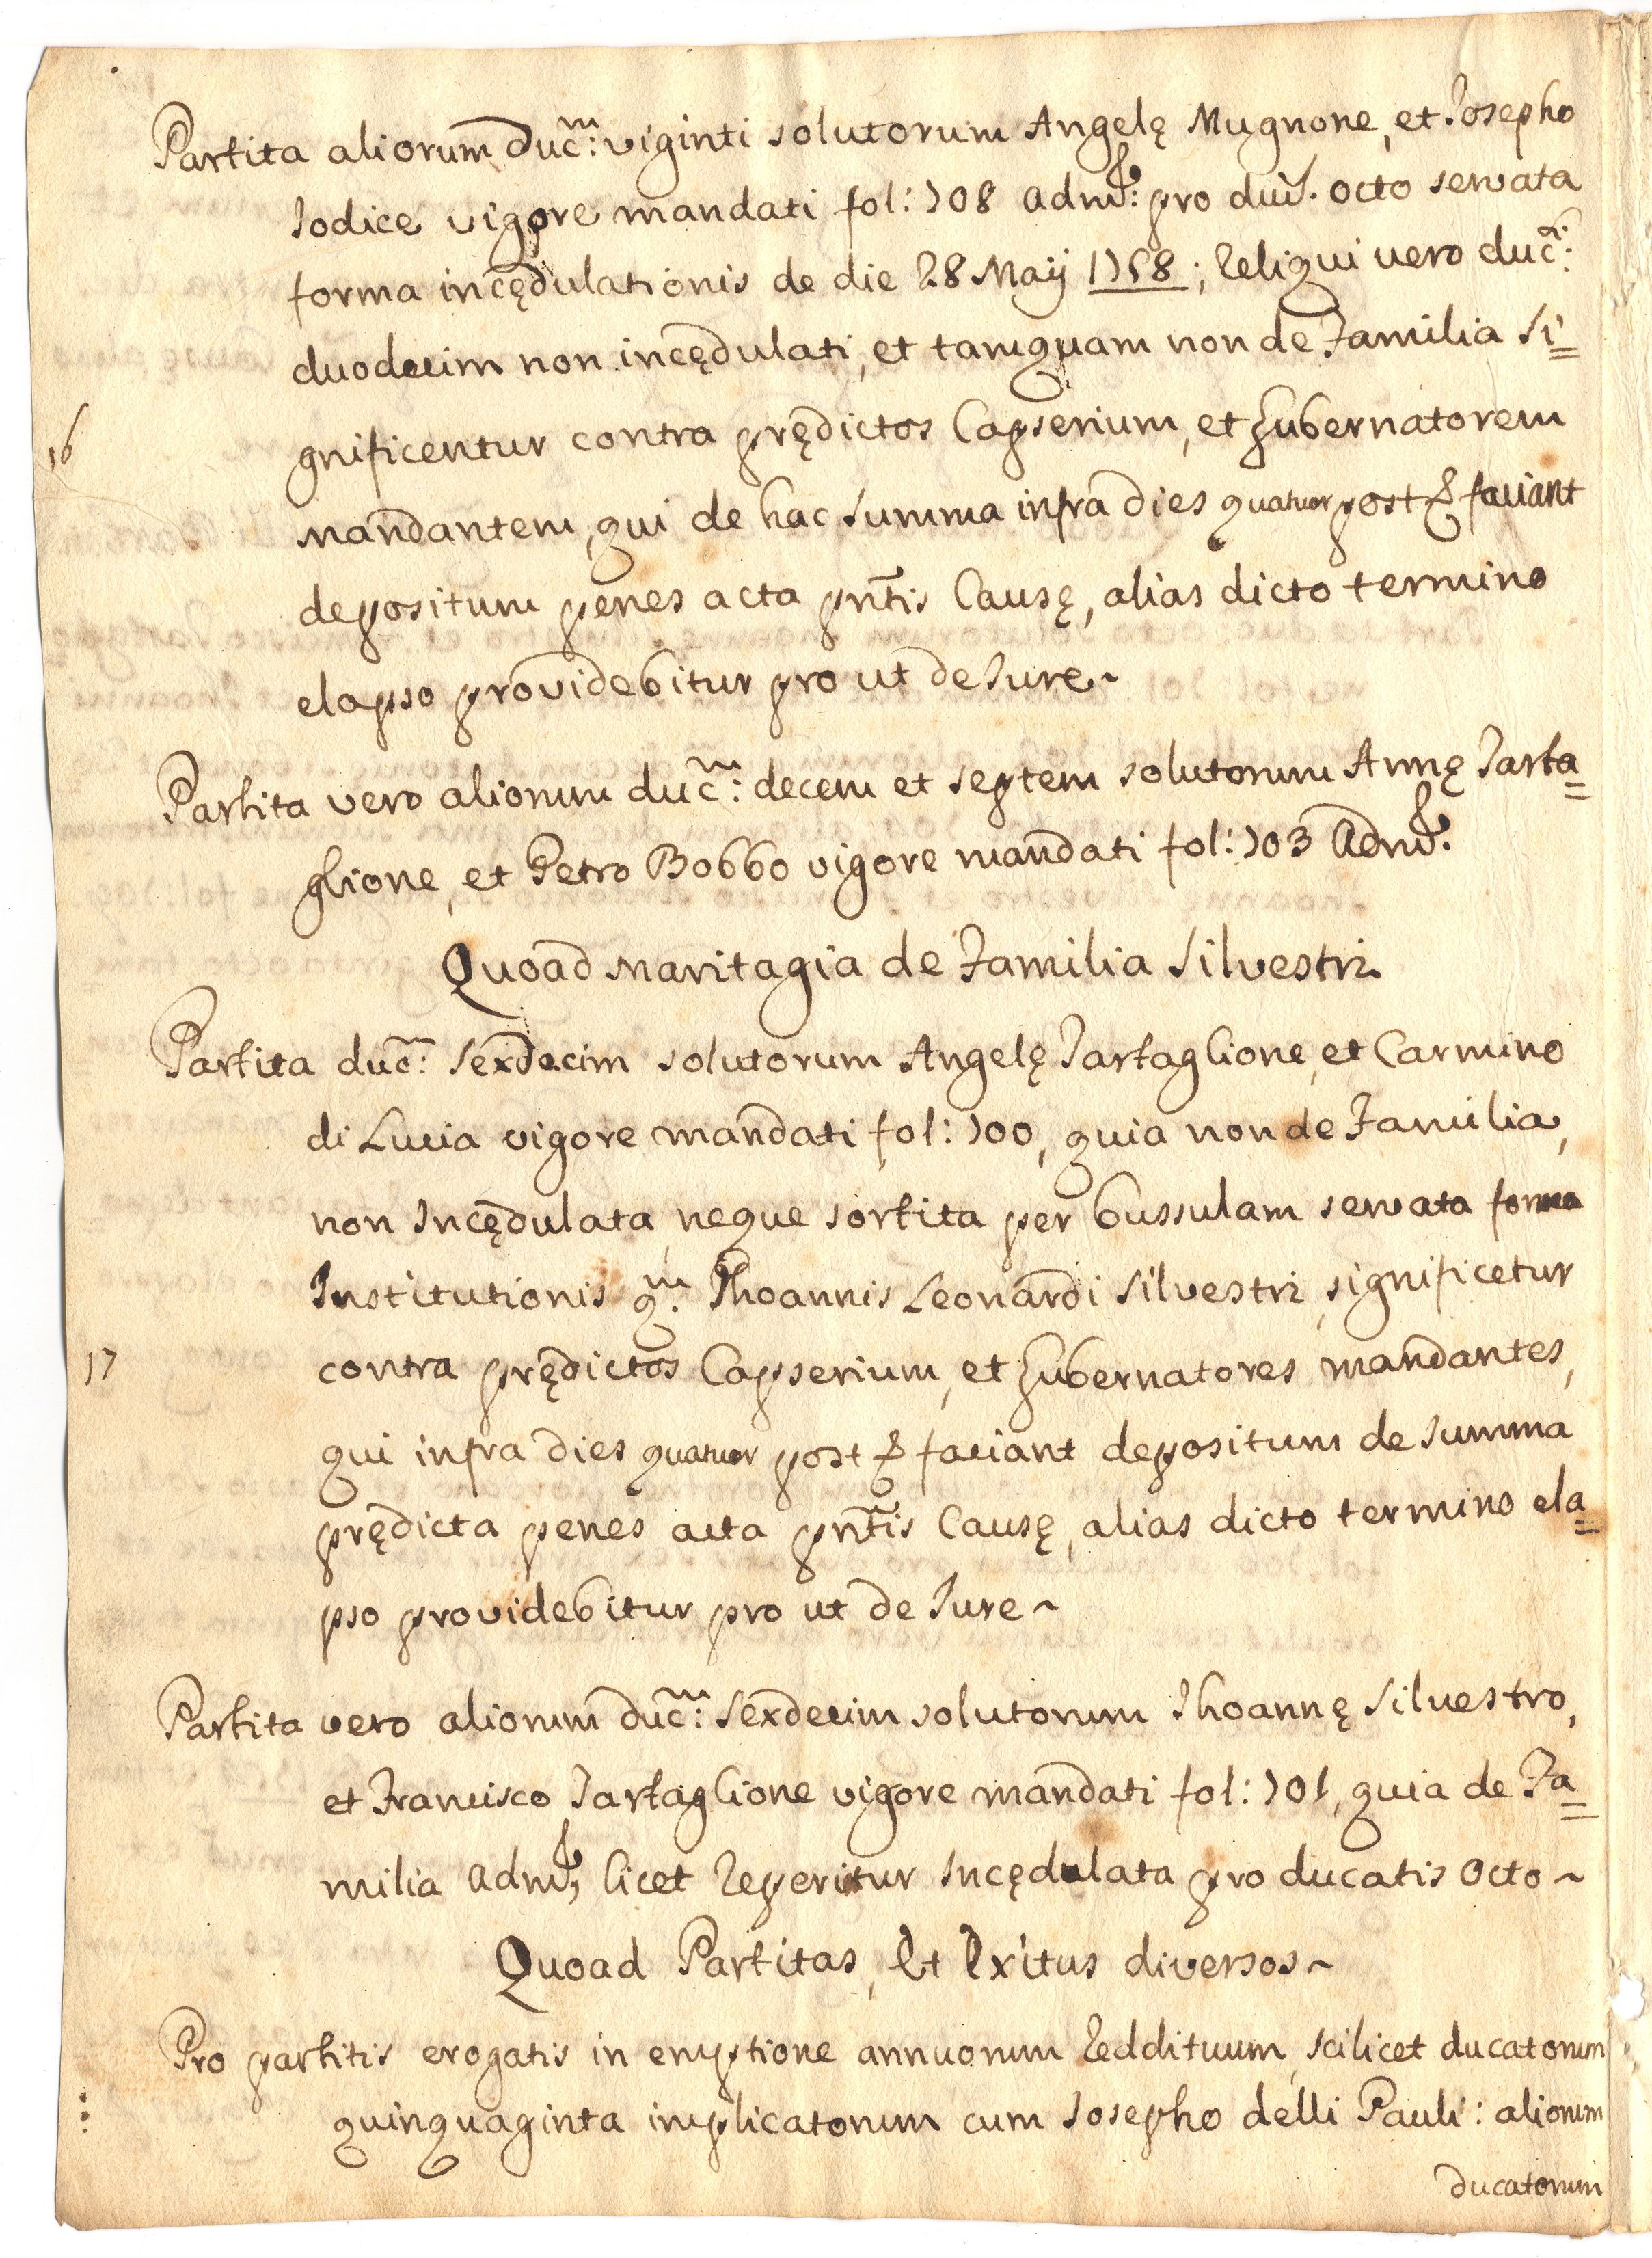 Partita aliorum Duc.m: viginti solutorum Angelę Mugnone, et Josepho
Iodice vigore mandati fol: 108 admr: pro duc. octo servata
forma incędulationis de die 28 Maij 1758; Reliqui vero duc.i:
duodecim non incędulati, et tamquam non de Familia Si=
16
gnificentur contra prędictos Capserium, et Gubernatorem
Mandantem, qui de hac Summa infra dies quatuor post &. faciant
depositum penes acta pñtis Causę, alias dicto termino
elapso providebitur pro ut de Iure~
Partita vero aliorum duc.m: decem et septem solutorum Annę Tarta=
glione, et Petro Bobbo vigore mandati fol: 103 Admr.
Quoad Maritagia de Familia Silvestri
Partita duc: Sexdecim solutorum Angelę Tartaglione, et Carmino
di Lucia vigore mandati fol: 100, quia non de Familia,
non Incędulata, neque sortita per bussulam servata forma
Institutionis q.m Jhoannis Leonardi Silvestri, significetur
17
contra prędictos Capserium, et Gubernatores mandantes,
qui infra dies quatuor post &. faciant depositum de Summa
prędicta penes acta pñtis Causę, alias dicto termino ela=
pso providebitur pro ut de Iure~
Partita vero aliorum Duc.m: Sexdecim solutorum Jhoannę Silvestro,
et Francisco Tartaglione vigore mandati fol: 101, quia de Fa=
milia admr, licet Reperitur Incędulata pro ducatis Octo~
Quoad Partitas, Et Exitus diversos~
Pro partitis erogatis in emptione annuorum Reddituum, scilicet ducatorum
quinquaginta implicatorum cum Iosepho delli Pauli: aliorum
ducatorum